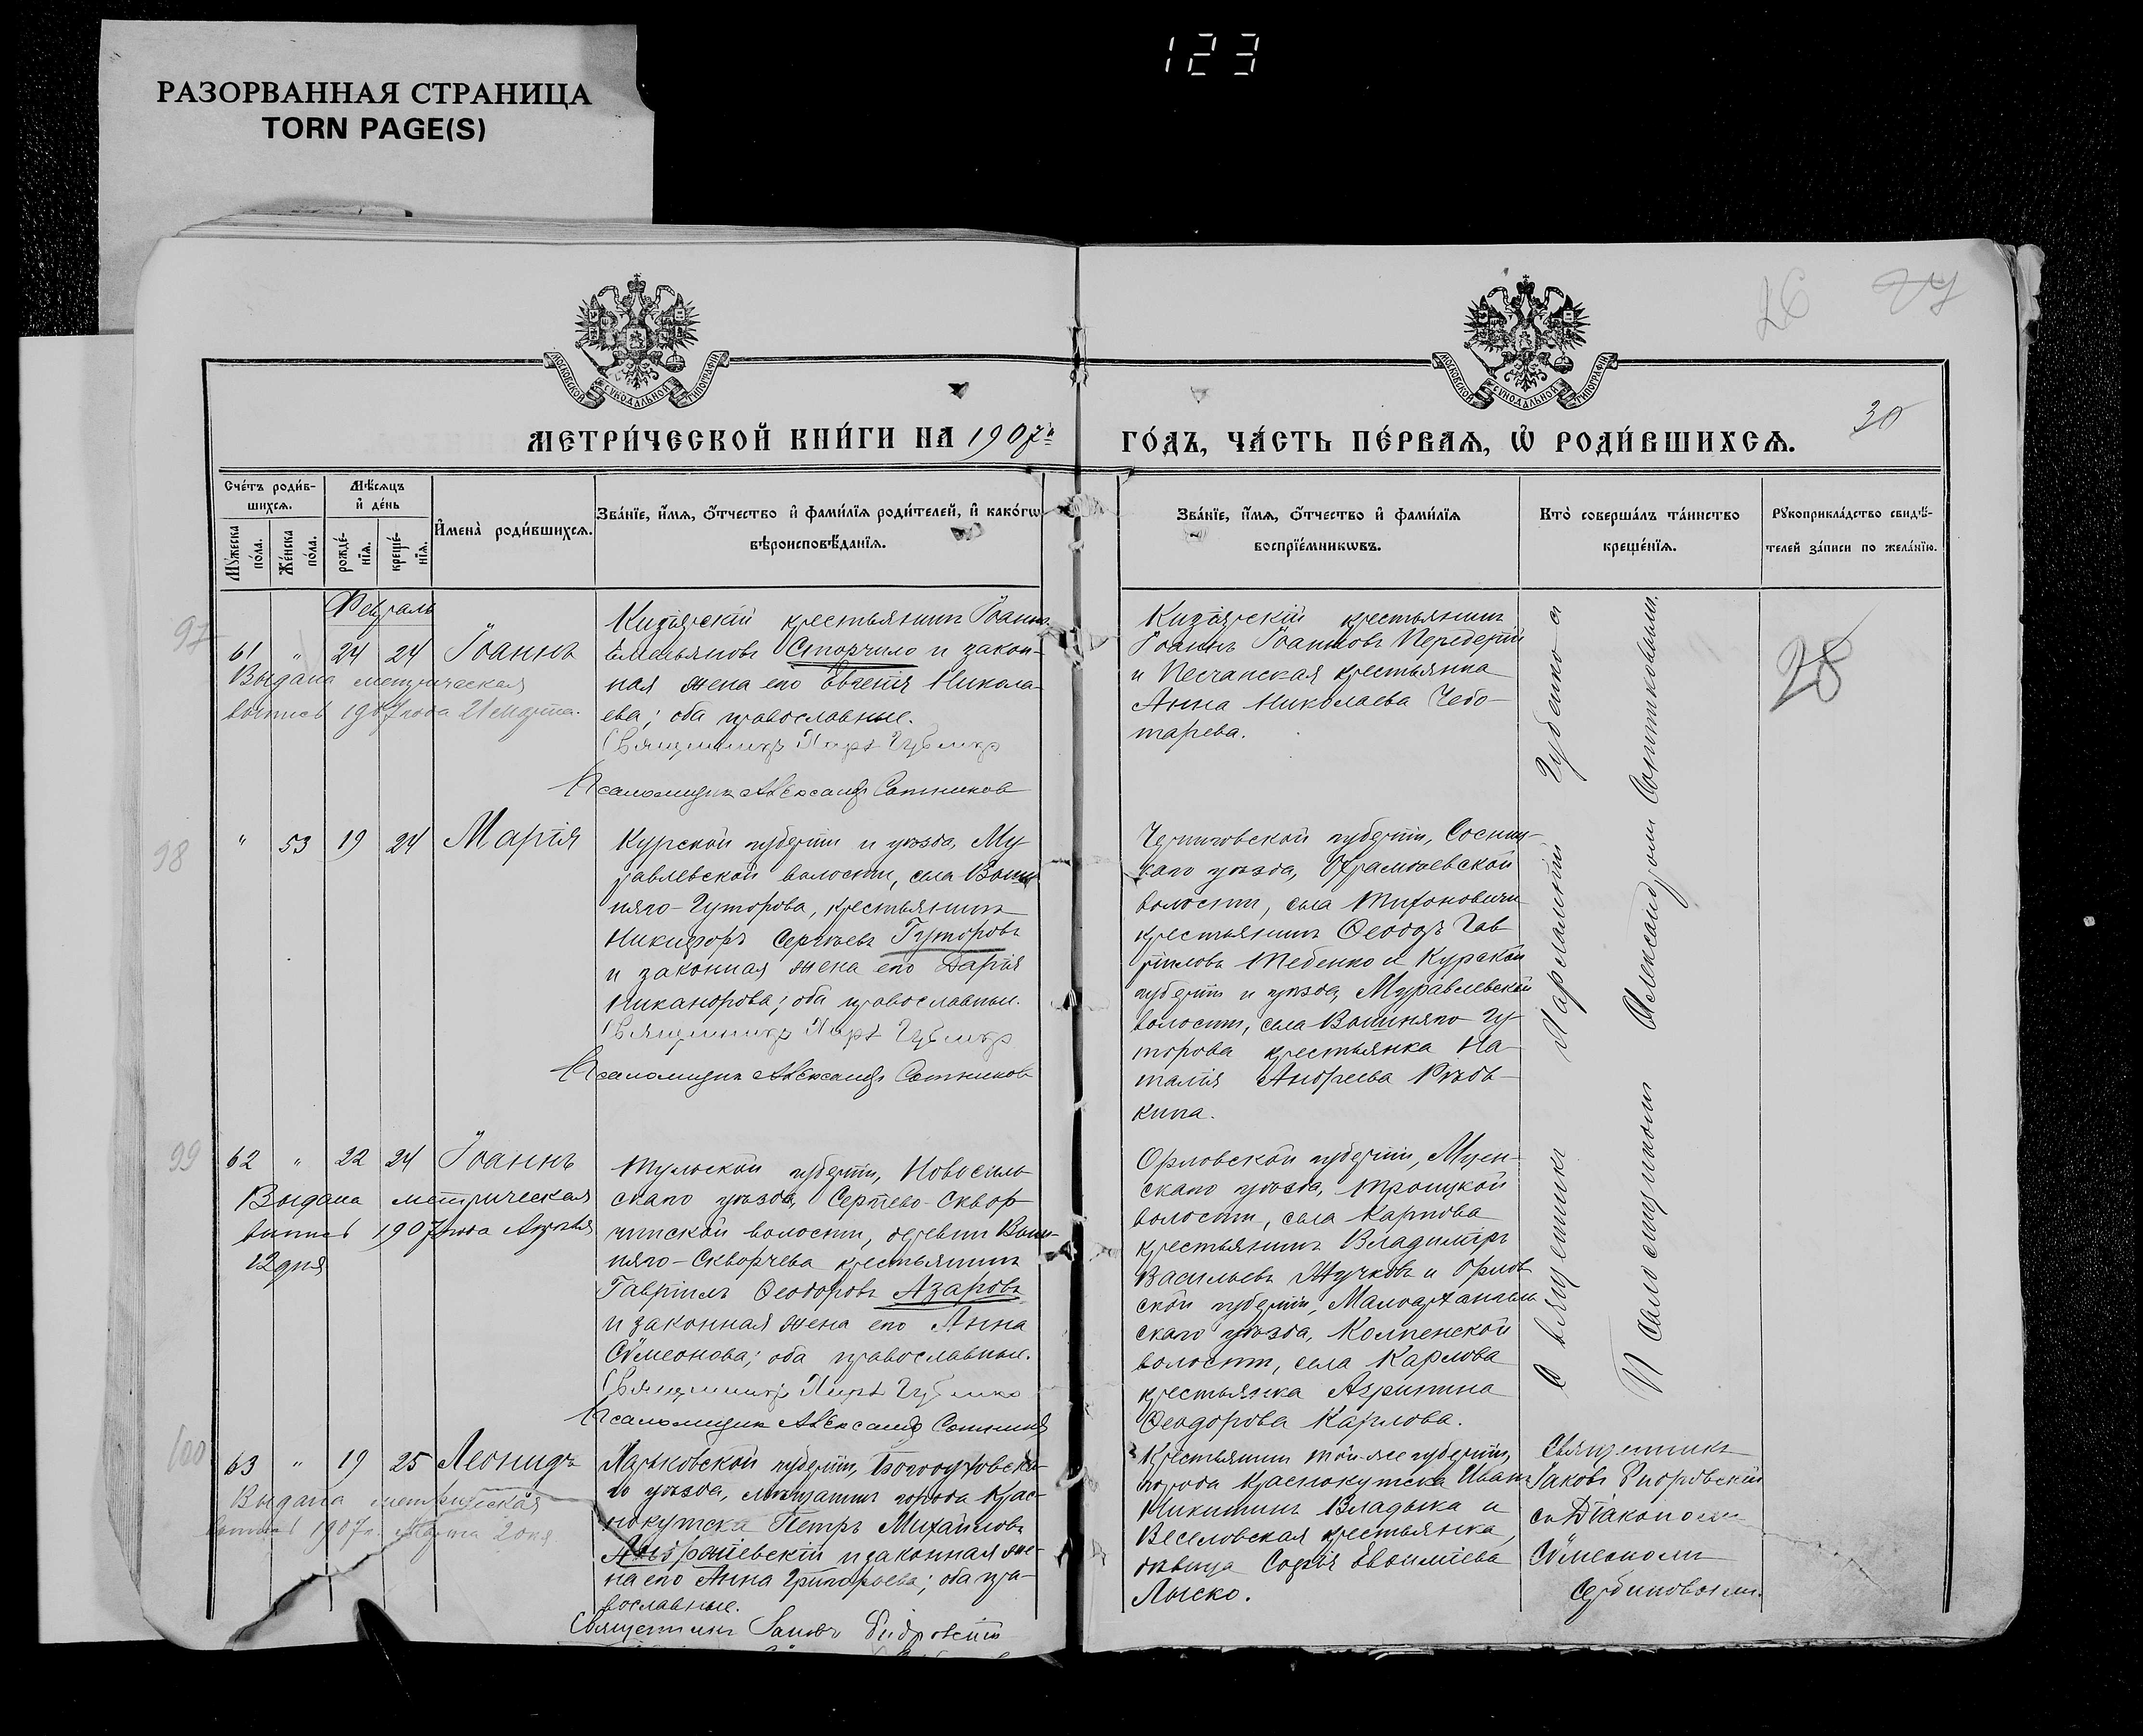 123
РАЗОРВАННАЯ СТРАНИЦА
TORN PAGE(S)
26 27
МОСКОВСКОЙ СѴНОДАЛЬНОЙ ТИПОГРАФІИ
МОСКОВСКОЙ СѴНОДАЛЬНОЙ ТИПОГРАФІИ
МЕТРИ́ЧЕСКОЙ КНИ́ГИ НА 1907й
ГО́ДЪ, ЧА́СТЬ ПЕ́РВАѦ, Ѡ РОДИ́ВШИХСѦ.
30
Сче́тъ роди́в-
шихсѧ.
Мѣ́сѧцъ
и҆ де́нь
Мꙋ́жеска по́ла.
Же́нска по́ла.
рожде́-нїѧ.
креще́-нїѧ.
И҆мена̀ роди́вшихсѧ.
Зва́нїе, и҆́мѧ, ѻ҆́тчество и҆ фами́лїѧ роди́телей, и҆ како́гѡ
вѣроисповѣ́данїѧ.
Зва́нїе, и҆́мѧ, ѻ҆́тчество и҆ фами́лїѧ
воспрїе́мникѡвъ.
Кто̀ соверша́лъ та́инство
креще́нїѧ.
Рꙋкоприкла́дство свидѣ́-
телей за́писи по жела́нїю.
Февраль
97
61 " 24 24 Іоаннъ
Выдана метрическая
выпись 1907 года 21 марта.
Кизіярскій крестьянинъ Іоаннъ
Емельяновъ Сторчило и закон-
ная жена его Евгенія Никола-
ева; оба православные.
Священникъ Харл. Губенко
Псаломщикъ Александръ Сотников
Кизіярскій крестьянинъ
Іоаннъ Іоанновъ Передерій
и Песчанская крестьянка
Анна Николаева Чебо-
тарева.
28
98
" 53 19 24 Марія
Курской губерніи и уѣзда, Му-
равлевской волости, села Выш-
няго-Гуторова, крестьянинъ
Никифоръ Сергѣевъ Гуторовъ
и законная жена его Дарія
Никанорова; оба православные.
Священникъ Харл. Губенко
Псаломщикъ Александръ Сотников
Черниговской губерніи, Сосниц-
каго уѣзда,
волости, села Тихоновичи
крестьянинъ Ѳеодоръ Гав-
ріиловъ Тебенко и Курской
губерніи и уѣзда, Муравлевской
волости, села Вышняго Гу-
торова крестьянка На-
талія Андреева Рѣдь-
кина.
99
62 " 22 24 Іоаннъ
Выдана метрическая
выпись 1907 года
12 дня
Тульской губерніи, Новосиль-
скаго уѣзда, Сергіево-Сквор-
чинской волости, деревни Выш-
няго-Скворчева крестьянинъ
Гавріилъ Ѳеодоровъ Азаровъ
и законная жена его Анна
Сѵмеонова; оба православные.
Священникъ Харл. Губенко
Псаломщикъ Александръ Сотников
Орловской губерніи, Мцен-
скаго уѣзда, Троицкой
волости, села Карпова
крестьянинъ Владиміръ
Васильевъ Жучковъ и Орлов-
ской губерніи, Малоархангель-
скаго уѣзда, Колпенской
волости, села Карлова
крестьянка Агрипина
Ѳеодорова Карлова.
Священникъ Харлампій Губенко съ
Псаломщикомъ Александромъ Сотниковымъ.
100
63 " 19 25 Леонидъ
Выдана метрическая
выпись 1907 г. Марта 2 дня
Харьковской губерніи, Богодуховска-
го уѣзда, мѣщанинъ города Крас-
нокутска Петръ Михаиловъ
и законная же-
на его Анна Григорьева; оба пра-
вославные.
Священникъ Іаковъ
Крестьянинъ той-же губерніи,
города Краснокутска Иванъ
Никитинъ Владыка и
Веселовская крестьянка,
дѣвица Софія Евѳиміева
Лыско.
Священникъ
Іаковъ
съ Діакономъ
Сѵмеономъ
Сербиновымъ.